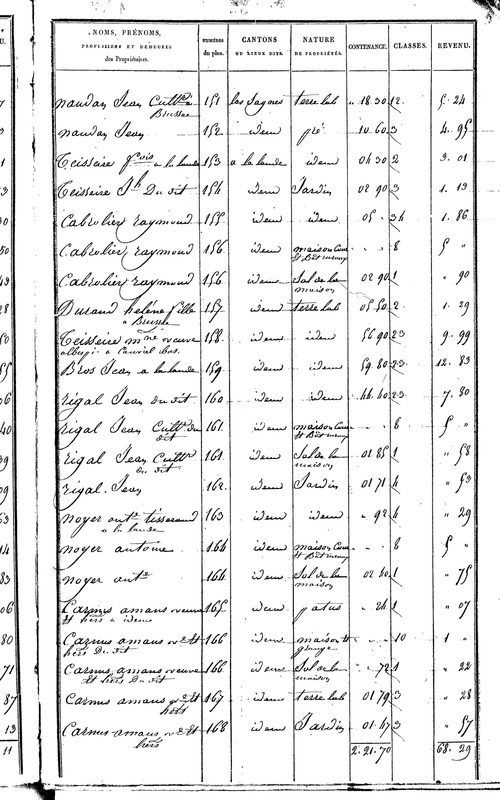 NOMS, PRÉNOMS, PROFESSIONS ET DEMEURES des Propriétaires. | NUMÉROS du plan. | CANTONS OU LIEUX DITS. | NATURE DE PROPRIÉTÉS. | CONTENANCE. | CLASSES. | REVENU.
naudan Jean Cultr a Brusse 151 las fagnes terre lab " 18.30 2 5. 24
naudan Jean 152 idem pré 10.60 3 4. 95
Teissaire fcois a la lande 153 a la lande idem 04 30 2 3. 01
Teisseire Jh Du dit 154 idem Jardin 02 90 3 1. 13
Cabrolier raymond 155 idem idem 05 " 34 1. 86
Cabrolier raymond 156 idem maison Cour et Bat ruraux " " 8 5 "
Cabrolier raymond 156 idem Sol de la maison 02 90 1 " 90
Durand heléne fille a Brusse 157 idem terre lab 05 50 2 1. 29
Teisseire veuve 158 idem idem 56 90 23 9. 99
Bros Jean a la lande 159 idem idem 59. 80 23 12. 83
rigal Jean du dit 160 idem idem 44. 40 23 7. 80
rigal Jean Cultr du dit 161 idem maison Cour et Bat ruraux " " 8 5 "
rigal Jean Cultr du dit 161 idem Sol de la maison 01 85 1 " 58
rigal Jean 162 idem Jardin 01 71 4 " 53
noyer ante tisserand a la lande 163 idem idem " 92 4 " 29
noyer antoine 164 idem maison Cour et Bat ruraux " " 8 5 "
noyer ante 164 idem Sol de la maison 02 40 1 " 75
Carnus amans veuve et hers a idem 165 idem patus " 24 1 " 07
Carnus amans ve et hers Du dit 166 idem maison et grange " " 10 1 "
Carnus amans veuve et hers Du dit 166 idem Sol de la maison " 72 1 " 22
Carnus amans ve et hers 167 idem terre lab 01 79 3 " 28
Carnus amans ve et hers 168 idem Jardin 01 47 3 " 57
2. 21. 70 68. 29